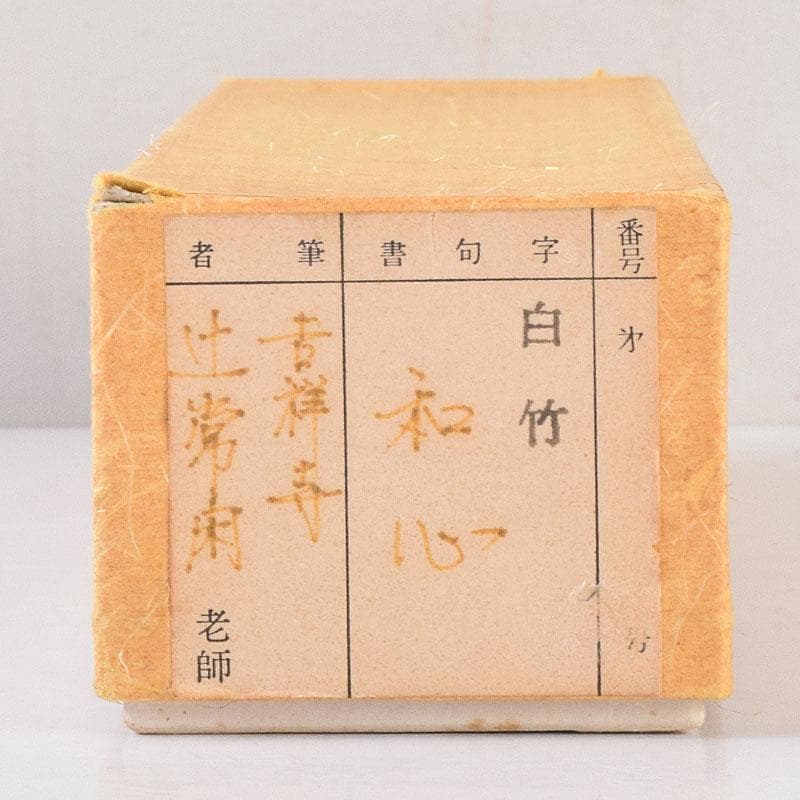 番号
才
号
字句書
白竹
和心
筆者
吉祥寺
辻常甫
老師